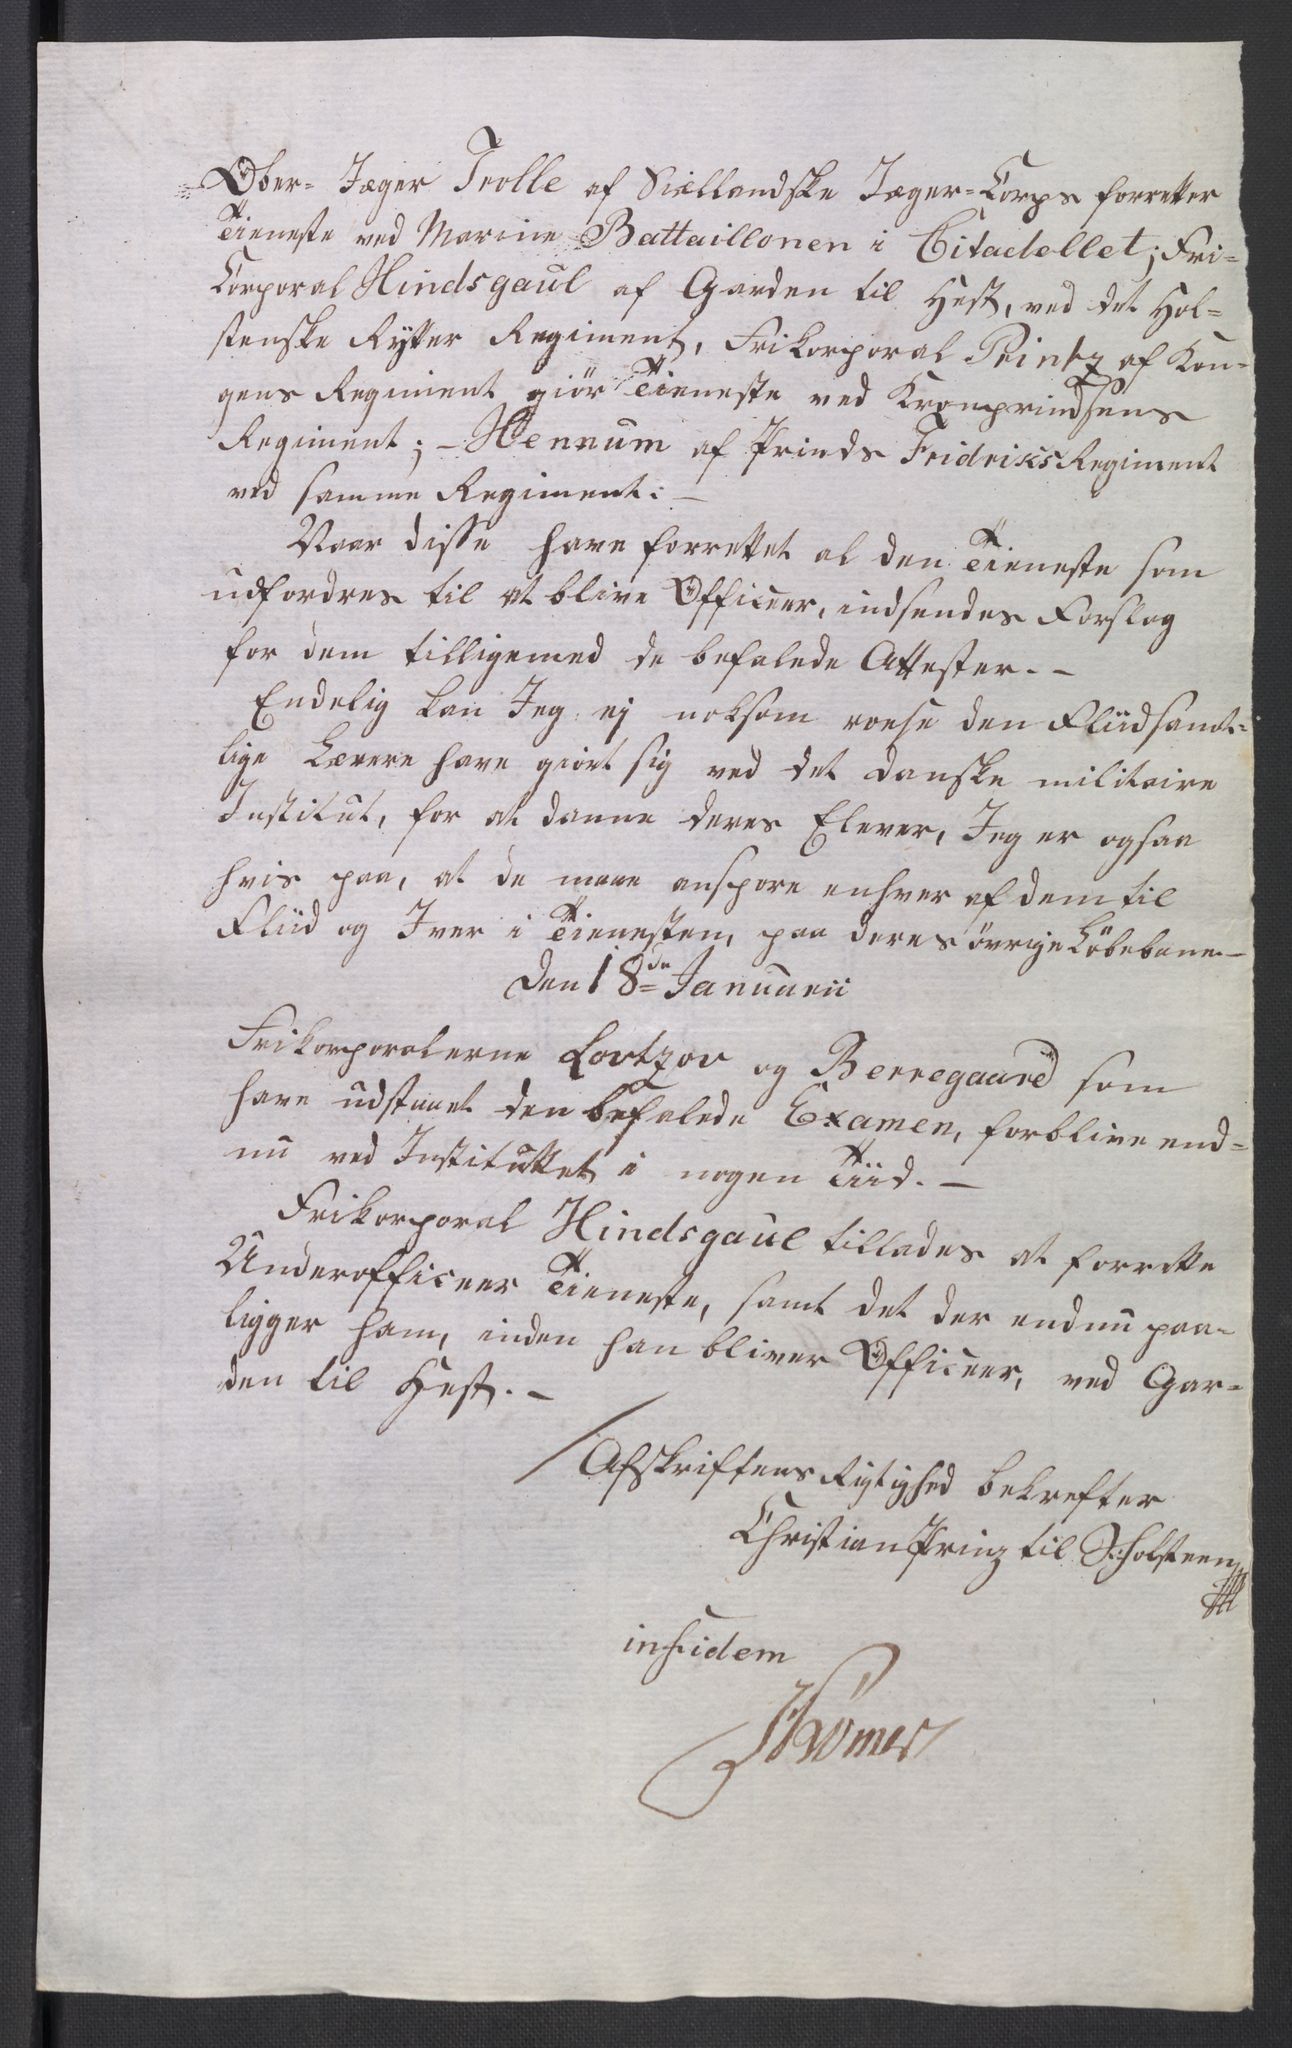 Ober- Jæger Trolle af Siællandske Jæger-Corps forretter
Tieneste ved Marine Battaillonen i Citadellet; Fri-
Corporal Hindsgaul af Garden til Hest, ved det Hol-
stenske Rytter Regiment, Frikorporal Printz af Kon-
gens Regiment giör Tieneste ved Kronprindsens
Regiment; - Hennum af Prinds Fridriks Regiment
ved samme Regiment. -
Naar disse have forrettet al den Tieneste som
udfordres til at blive Officeer, indsendes Forslag
for dem tilligemed de befalede Attester. -
Endelig kan Jeg ej noksom roese den Fliid samt-
lige Lærere have giört sig ved det danske militaire
Institut, for at danne deres Elever, Jeg er ogsaa
vis paa, at de mane anspore enhver af dem til
Fliid og Iver i Tienesten, paa deres övrige Löbebane. -
Den 18de Januarii
Frikorporalerne Lortzov og Berregaard som
have udstaaet den befalede Examen, forblive end-
nu ved Instituttet i nogen Tiid. -
Frikorporal Hindsgaul tillades at forrette
Underofficeer Tieneste, samt det der endnu paa-
ligger ham, inden han bliver Officeer, ved Gar-
den til Hest. -
Afskriftens Rigtighed bekrefter
Christian Prinz til S: Holsteen
in fidem